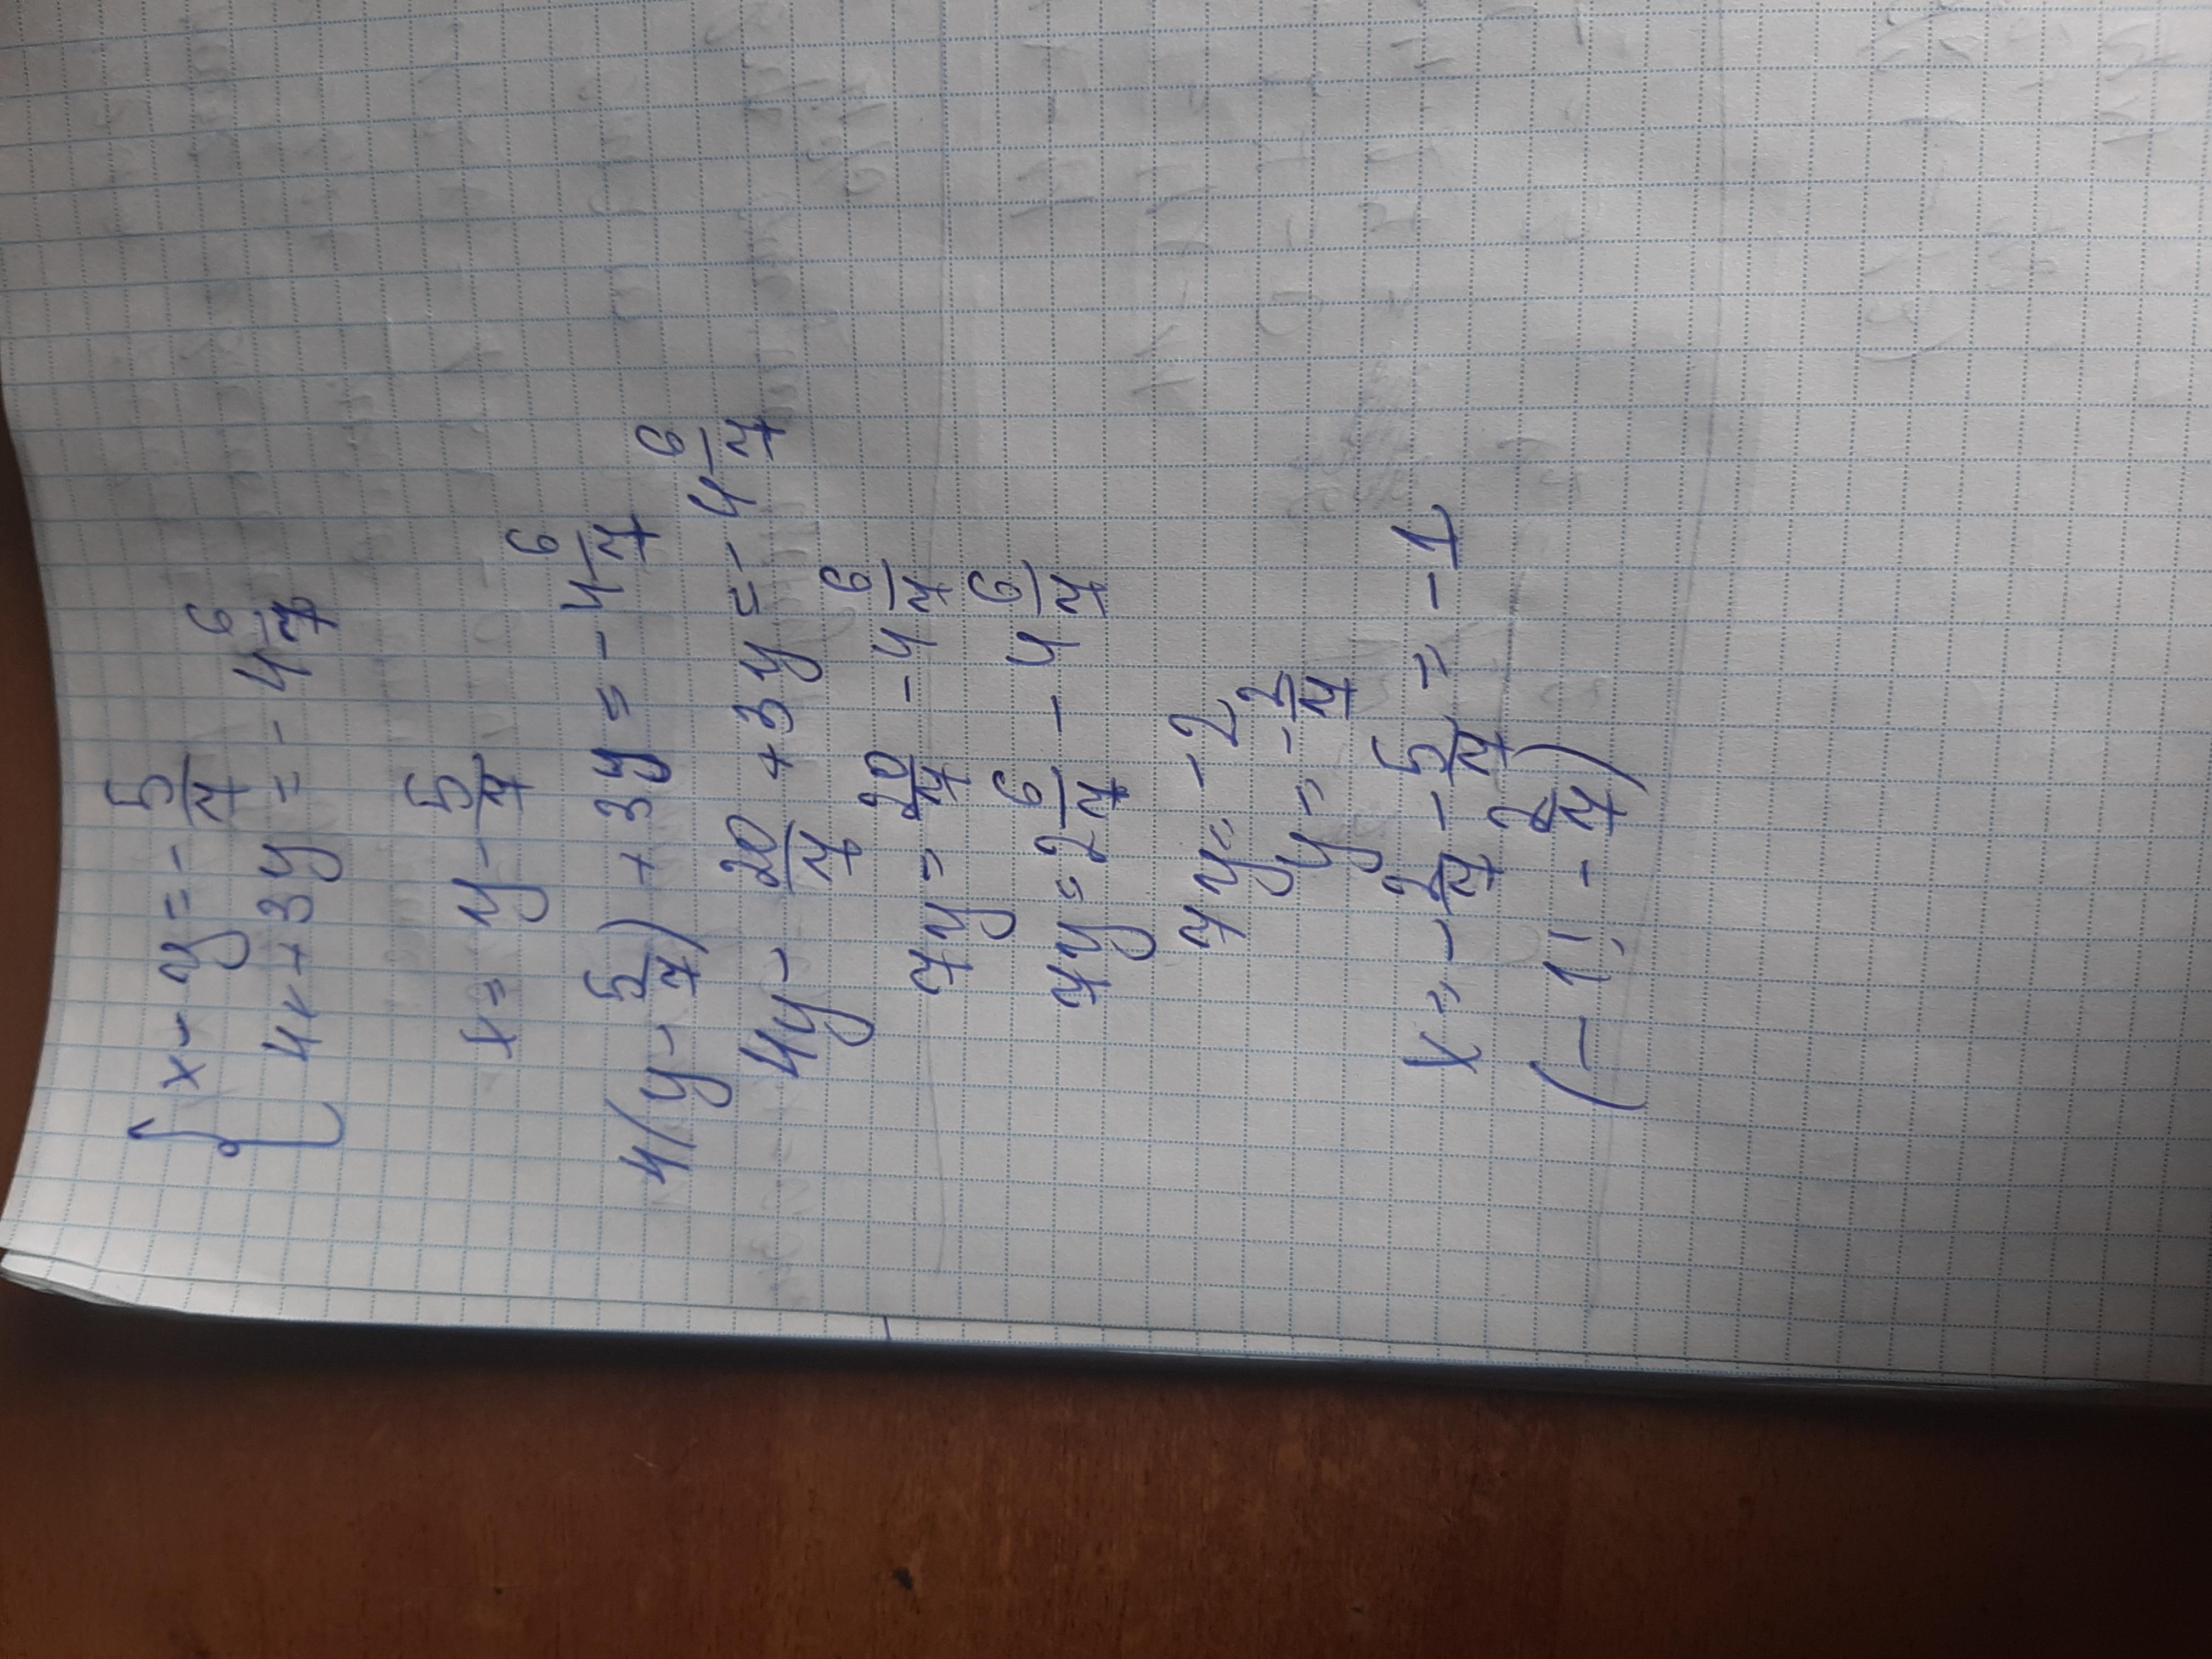 { x - y = - 5/7
4x + 3y = - 4 6/7
x = y - 5/7
4(y - 5/7) + 3y = - 4 6/7
4y - 20/7 + 3y = - 4 6/7
7y = 20/7 - 4 6/7
7y = 2 6/7 - 4 6/7
7y = - 2
y = - 2/7
x = - 2/7 - 5/7 = - 1
(- 1; - 2/7)